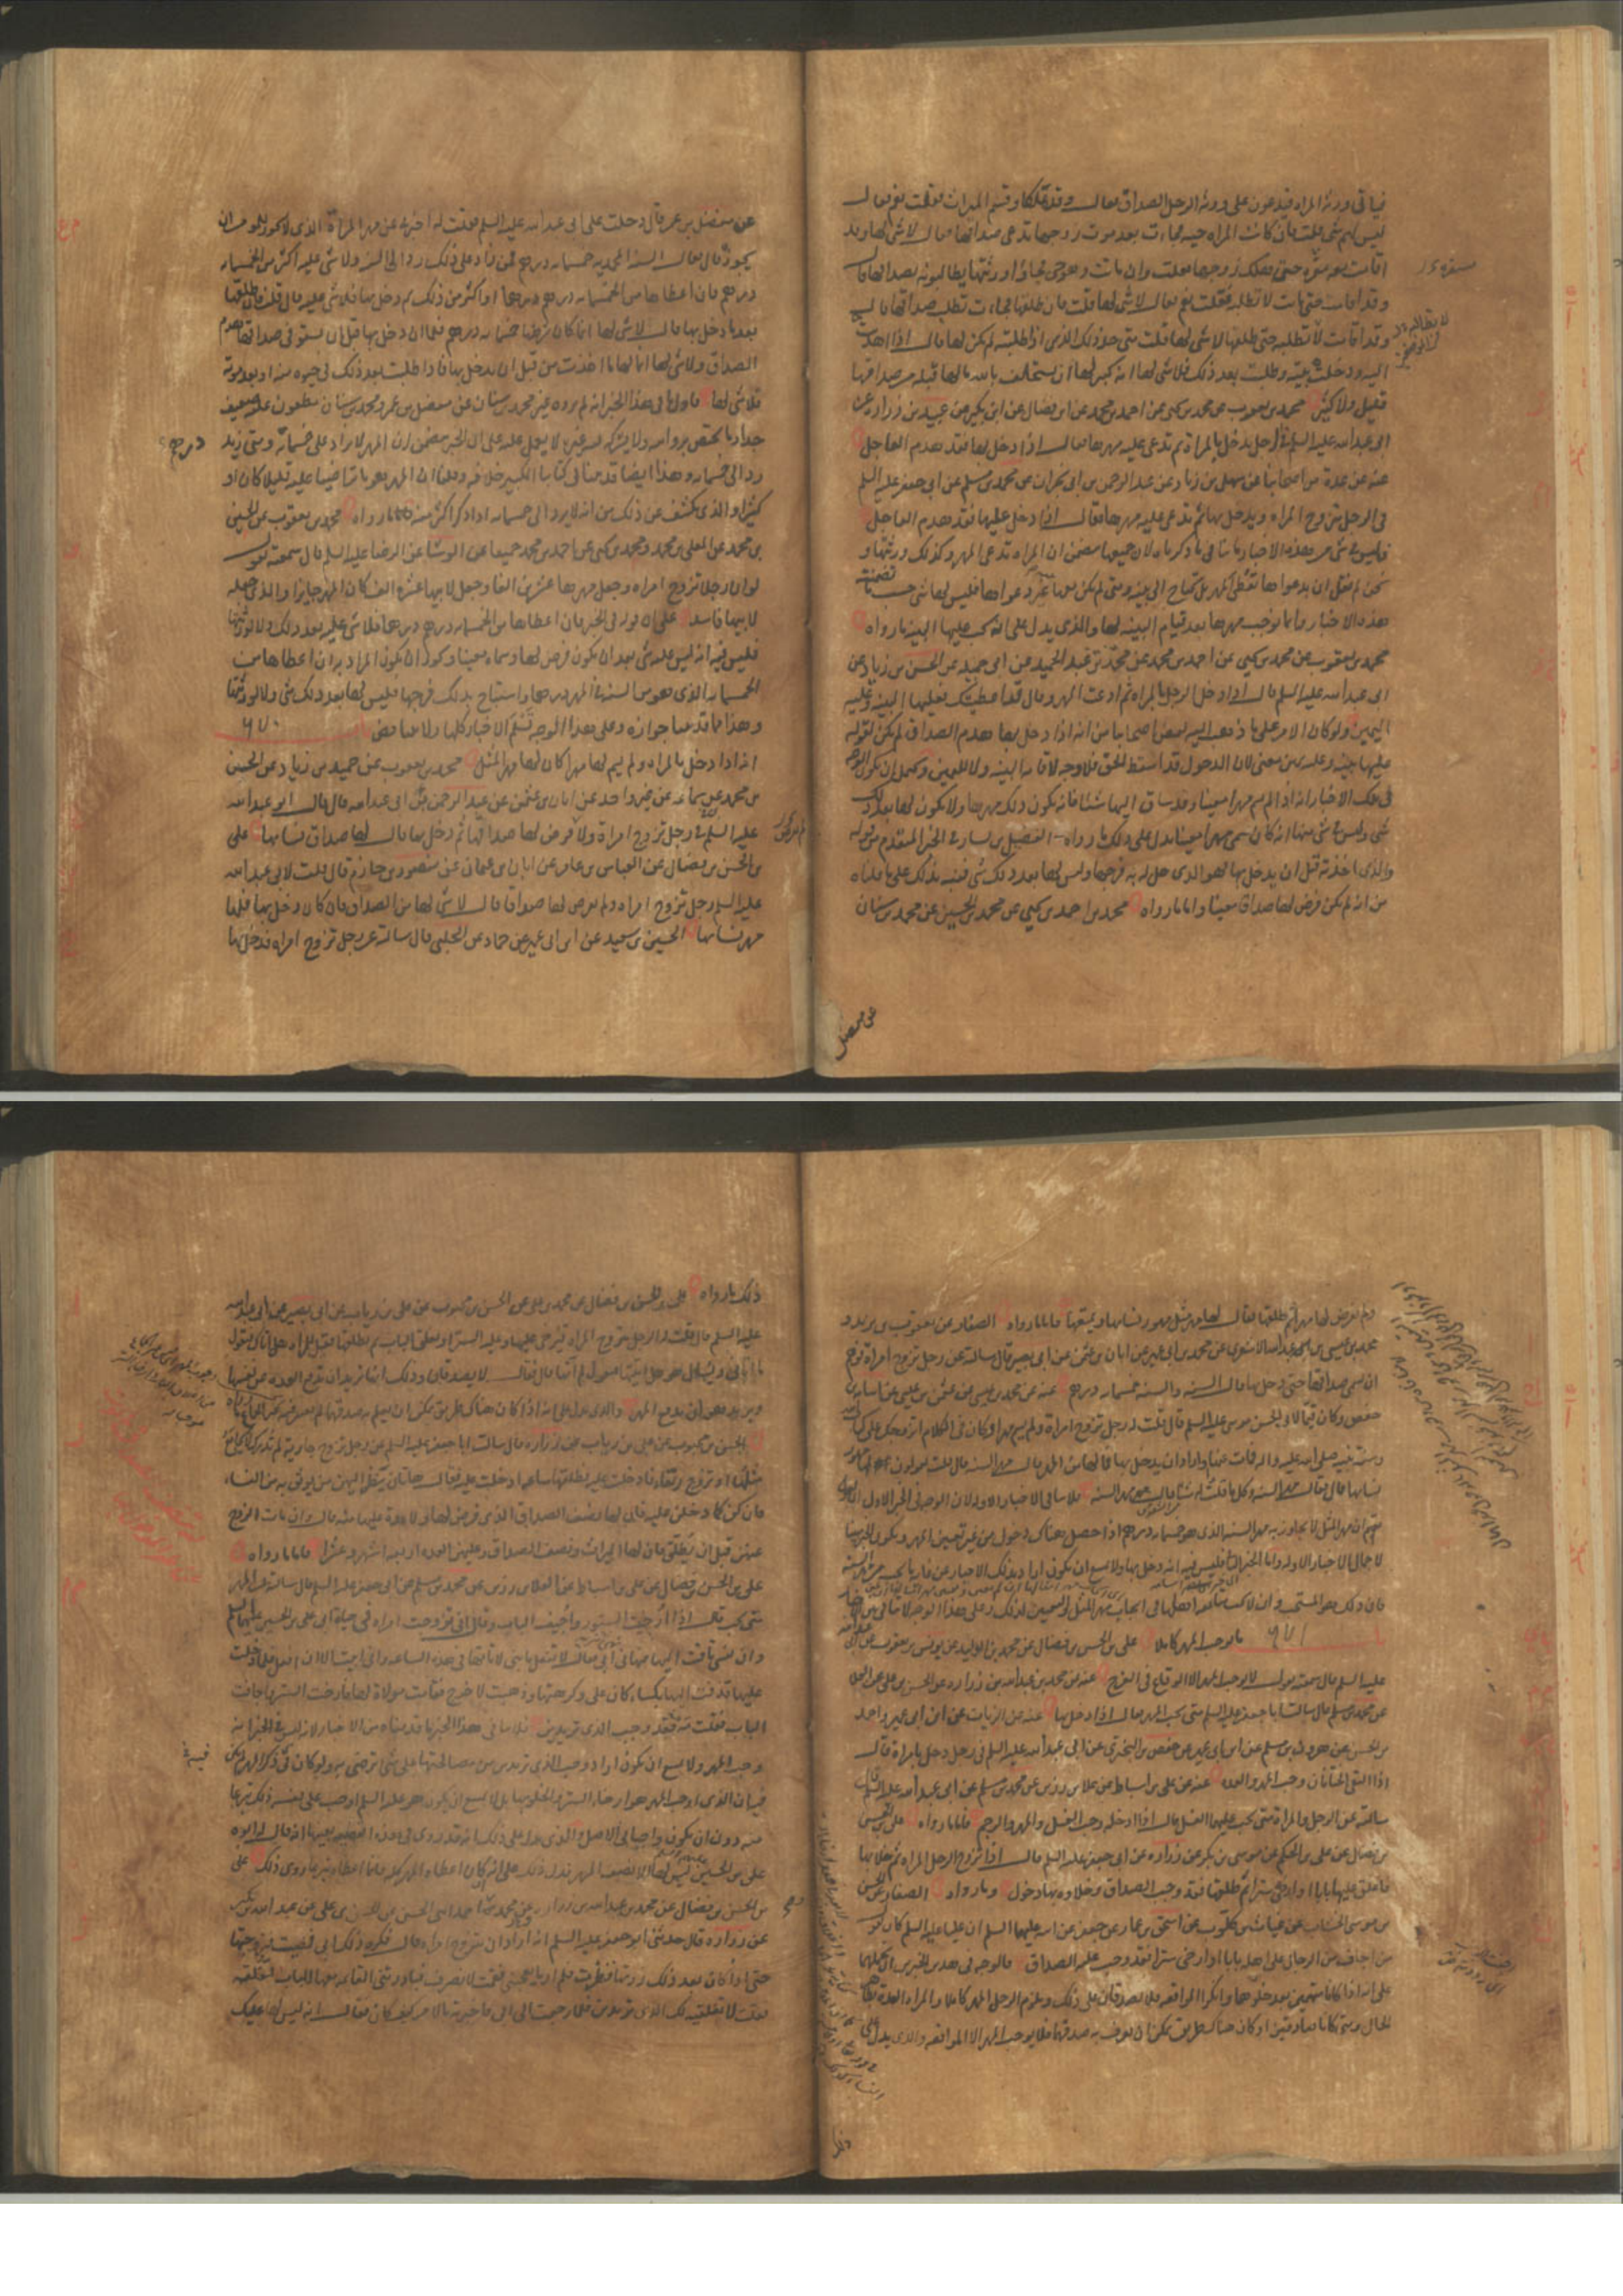 فياتي ورثة المراه فيدعون على ورثة الرجل الصداق فقال وقد هلكا وقسم الميراث فقلت نعم فقال
ليس لهم شي قلت فان كانت المراه حيه فجاءت بعد موت زوجها تدعى صداقها فقال لا شي لها وقد
اقامت معه مقره حتى هلك زوجها فقلت وان ماتت وهو حي فجاؤا ورثتها يطالبونه بصداقها قال
وقد اقامت حتى ماتت لا تطلبه فقلت نعم فقال لا شي لها قلت فان طلقها فجاءت تطلب صداقها قال
وقد اقامت لا تطلبه حتى طلقها لا شي لها قلت متى حد ذلك الذي اذا طلبته لم يكن لها قال اذا اهديت
اليه ودخلت بيته وطلبت بعد ذلك فلا شي لها انه كبير لها ان يستحلف بالله ما لها قبله من صداقها
قليل ولا كثير محمد بن يعقوب عن محمد بن يحيى عن احمد بن محمد عن ابن فضال عن ابن بكير عن عبيد بن زرارة عن
ابي عبد الله عليه السلم في الرجل يدخل بالمراة ثم تدعي عليه مهرها فقال اذا دخل بها فقد هدم العاجل
عنه عن عدة من اصحابنا عن سهل بن زياد عن عبد الرحمن بن ابي نجران عن محمد بن مسلم عن ابي جعفر عليه السلم
في الرجل يتزوج المراه ويدخل بها ثم تدعي عليه مهرها فقال اذا دخل عليها فقد هدم العاجل
فليس في شي من هذه الاخبار ما ينافي ما ذكرناه لان جميعها متضمن ان المراه تدعي المهر وكذلك ورثتها و
نحن لم نقل ان بدعواها تعطى المهر بل تحتاج الى بينه ومتى لم يكن معها غير دعواها فليس لها شي حسب ما تضمنته
هذه الاخبار وانما نوجب مهرها بعد قيام البينه لها والذي يدل على انه يجب عليها البينه ما رواه
محمد بن يعقوب عن محمد بن يحيى عن احمد بن محمد عن محمد بن عبد الحميد عن ابي جميله عن الحسن بن زياد عن
ابي عبد الله عليه السلم قال اذا دخل الرجل بالمراه ثم ادعت المهر وقال قد اعطيتك فعليها البينه وعليه
اليمين ولو كان الامر على ما ذهب اليه بعض اصحابنا من انه اذا دخل بها هدم الصداق لم يكن لقوله
عليها بينه وعليه يمين معنى لان الدخول قد اسقط الحق فلا وجه لاقامة البينه ولا لليمين ويحتمل ان يكون الوجه
في هذه الاخبار انه اذا لم يسم مهرا معينا وقد ساق اليها شيئا فانه يكون ذلك مهرها ولا يكون لها بعد ذلك
شي وليس في شي منها انه كان سمى مهرا معينا يدل على ذلك ما رواه الفضيل بن يسار في الخبر المتقدم من قوله
والذي اخذته قبل ان يدخل بها فهو الذي حل له به فرجها وليس لها بعد ذلك شي فنبه بذلك على ما قلناه
من انه لم يكن فرض لها صداقا معينا واما ما رواه محمد بن احمد بن يحيى عن محمد بن الحسين عن محمد بن سنان
عن مفضل
عن مفضل بن عمر قال دخلت على ابي عبد الله عليه السلم فقلت له اخبرني عن مهر المراة الذي لا يجوز للمومن ان
يجوزه قال فقال السنه المحمديه خمسمايه درهم فمن زاد على ذلك رد الى السنه ولا شي عليه اكثر من الخمسمايه
درهم فان اعطاها من الخمسمايه درهم درهما او اكثر من ذلك ثم دخل بها فلا شي عليه قال قلت فان طلقها
بعد ما دخل بها قال لا شي لها انما كان شرطها خمسمايه درهم فلما ان دخل بها قبل ان تستوفي صداقها هدم
الصداق ولا شي لها انما لها ما اخذت من قبل ان يدخل بها فاذا طلبت بعد ذلك في حيوه منه او بعد موته
فلا شي لها فاول ما في هذا الخبر انه لم يروه غير محمد بن سنان عن مفضل بن عمر ومحمد بن سنان مطعون عليه ضعيف
جدا وما يختص بروايته ولا يشركه فيه غيره لا يعمل عليه على ان الخبر متضمن ان المهر لا يزاد على خمسمائه ومتى زيد
رد الى خمسمايه وهذا ايضا قد بينا في كتابنا الكبير خلافه وقلنا ان المهر هو ما تراضيا عليه قليلا كان او
كثيرا والذي يكشف عن ذلك من انه لا يرد الى خمسمايه اذا ذكر اكثر منه ما رواه محمد بن يعقوب عن الحسين
بن محمد عن المعلى بن محمد ومحمد بن يحيى عن احمد بن محمد جميعا عن الوشا عن الرضا عليه السلم قال سمعته يقول
لو ان رجلا تزوج امراه وجعل مهرها عشرين الفا وجعل لابيها عشره الف كان المهر جايزا والذي جعله
لابيها فاسدا على ان قوله في الخبر فان اعطاها من الخمسمايه درهم درهما فلا شي عليه بعد ذلك ولا لورثتها
فليس فيه انه ليس عليه شي بعد ان يكون فرض لها وسماه معينا ويجوز ان يكون المراد به ان اعطاها من
الخمسمايه الذي هو من السنه في المهر درهما واستباح بذلك فرجها فليس لها بعد ذلك شي ولا لورثتها
وهذا مما قدمنا جوازه وعلى هذا الوجه تسلم الاخبار كلها ولا تتناقض
انه اذا دخل بالمراه ولم يسم لها مهرا كان لها مهر المثل محمد بن يعقوب عن حميد بن زياد عن الحسن
بن محمد بن سماعه عن غير واحد عن ابان بن عثمن عن عبد الرحمن بن ابي عبد الله قال قال ابو عبد الله
عليه السلم في رجل تزوج امراة ولم يفرض لها صداقها ثم دخل بها قال لها صداق نسائها على
بن الحسن بن فضال عن العباس بن عامر عن ابان بن عثمان عن منصور بن حازم قال قلت لابي عبد الله
عليه السلم رجل تزوج امراه ولم يفرض لها صداقا قال لا شي لها من الصداق فان كان دخل بها فلها
مهر نسائها الحسين بن سعيد عن ابن ابي عمير عن حماد عن الحلبي قال سالته عن رجل تزوج امراه فدخل بها
ولم يفرض لها مهرا ثم طلقها فقال لها مهر مثل مهور نسائها ويمتعها فاما ما رواه الصفار عن يعقوب بن يزيد و
محمد بن عيسى بن عبد الله الاشعري عن محمد بن ابي عمير عن ابان بن عثمن عن ابي بصير قال سالته عن رجل تزوج امراة فوهم
ان يسمي صداقها حتى دخل بها قال السنه والسنه خمسمايه درهم عنه عن محمد بن عيسى عن عثمن بن عيسى عن اسامه بن
حفص وكان قيما لابي الحسن موسى عليه السلم قال قلت له رجل تزوج امراة ولم يسم مهرا وكان في الكلام اتزوجك على كتاب الله
وسنة نبيه صلى الله عليه واله فمات عنها او اراد ان يدخل بها فما لها من المهر قال مهر السنه قال قلت يقولون اهلها مهور
نسائها قال فقال مهر السنه وكل ما قلت له شيئا قال مهر السنه فلا ينافي الاخبار الاوله لان الوجه في الخبر الاول ان
مهر المثل لا يجاوز به مهر السنه الذي هو خمسمايه درهم اذا حصل هناك دخول من غير تعيين المهر ويكون الخبر مبينا
لاجمال الاخبار الاوله واما الخبر الثاني فليس فيه انه دخل بها ولا يمتنع ان يكون اراد بذلك الاخبار عن ما يستحب من مهر السنه
فان ذلك هو المستحب
ما يوجب المهر كاملا على بن الحسن بن فضال عن محمد بن الوليد عن يونس بن يعقوب عن ابي عبد الله
عليه السلم قال سمعته يقول لا يوجب المهر الا الوقاع في الفرج عنه عن محمد بن عبد الله بن زرارة عن الحسن بن علي عن العلا
عن محمد بن مسلم قال سالت ابا جعفر عليه السلم متى يجب المهر قال اذا دخل بها عنه عن الزيات عن ابن ابي عمير واحمد
بن الحسن عن هرون بن مسلم عن ابن ابي عمير عن حفص بن البختري عن ابي عبد الله عليه السلم في رجل دخل بامراة قال
اذا التقى الختانان وجب المهر والعده عنه عن علي بن اسباط عن علا بن رزين عن محمد بن مسلم عن ابي عبد الله عليه السلم قال
سالته عن الرجل والمراة متى يجب عليهما الغسل قال اذا ادخله وجب الغسل والمهر والرجم فاما ما رواه علي بن الحسن
بن فضال عن علي بن الحكم عن موسى بن بكر عن زراره عن ابي جعفر عليه السلم قال اذا تزوج الرجل المراه ثم خلا بها
فاغلق عليها بابا او ارخى سترا ثم طلقها فقد وجب الصداق وخلاوه بها دخول وما رواه الصفار عن الحسن
بن موسى الخشاب عن غياث بن كلوب عن اسحق بن عمار عن جعفر عن ابيه عليهما السلم ان عليا عليه السلم كان يقول
من اجاف من الرجال على اهله بابا او ارخى سترا فقد وجب عليه الصداق فالوجه في هذين الخبرين ان نحملهما
على انه اذا كانا متهمين بعد خلوهما وانكرا المواقعه فلا يصدقان على ذلك ويلزم الرجل المهر كاملا والمراه العدة بظاهر
الحال ومتى كانا صادقين او كان هناك طريق يمكن ان يعرف به صدقهما فلا يوجب المهر الا المواقعه والذي يدل على
ذلك ما رواه على بن الحسن بن فضال عن محمد بن علي عن الحسن بن محبوب عن علي بن رياب عن ابي بصير عن ابي عبد الله
عليه السلم قال قلت له الرجل يتزوج المراه فيرخي عليها وعليه الستر او يغلق الباب ثم يطلقها فقيل للمراه هل اتاك فتقول
ما اتاني ويسئل هو هل اتيتها فيقول لم آتها قال فقال لا يصدقان وذلك انها تريد ان تدفع العده عن نفسها
ويريد هو ان يدفع المهر والذي يدل على انه اذا كان هناك طريق يمكن ان يعلم به صدقهما لم يعتبر فيه غير الجماع ما رواه
الحسن بن محبوب عن علي بن رياب عن زراره قال سالت ابا جعفر عليه السلم عن رجل تزوج جارية لم تدرك لا يجامع
مثلها او تزوج رتقاء فادخلت عليه فطلقها ساعه ادخلت عليه فقال هاتان ينظر اليهن من يوثق به من النساء
فان كن كما دخلن عليه فان لها نصف الصداق الذي فرض لها ولا عدة عليها منه قال وان مات الزوج
عنهن قبل ان يطلق فان لها الميراث ونصف الصداق وعليهن العده اربعه اشهر وعشرا فاما ما رواه
علي بن الحسن بن فضال عن علي بن اسباط عن العلا بن رزين عن محمد بن مسلم عن ابي جعفر عليه السلم قال سالته عن المهر
متى يجب قال اذا ارخيت الستور واجيف الباب وقال اني تزوجت امراه في حياة ابي علي بن الحسين عليهما السلم
وان نفسي تاقت اليها فنهاني ابي فقال لا تفعل يا بني لا تاتها في هذه الساعه واني ابيت الا ان افعل فلما دخلت
عليها قذفت اليها بكساء كان علي وكرهتها وذهبت لاخرج فقامت مولاة لها فارخت الستر واجافت
الباب فقلت مه فقد وجب الذي تريدين فلا ينافي هذا الخبر ما قدمناه من الاخبار لانه ليس في الخبر انه
وجب المهر ولا يمتنع ان يكون اراد وجب الذي تريدين من مصالحتها على شي ترضى به ولو كان فيه ذكر المهر لم يكن
فيه ان الذي اوجب المهر هو ارخاء الستر والخلو بها بل لا يمتنع ان يكون هو عليه السلم اوجب على نفسه ذلك تبرعا
منه دون ان يكون واجبا في الاصل والذي يدل على ذلك انه قد روى في هذه القضيه بعينها انه قال له ابوه
علي بن الحسين ليس لها الا نصف المهر فدل ذلك على انه لو كان اعطاه المهر كله فانما اعطاه تبرعا روى ذلك علي
بن الحسن بن فضال عن محمد بن عبد الله بن زراره ومحمد واحمد ابني الحسن عن الحسن بن علي عن عبد الله بن بكير
عن زراره قال حدثني ابو جعفر عليه السلم انه اراد ان يتزوج امراه قال فكره ذلك ابي فمضيت فتزوجتها
حتى اذا كان بعد ذلك زرتها فنظرت فلم ار ما يعجبني فقمت لانصرف فبادرتني القائمه معها الباب لتغلقه
فقلت لا تغلقيه لك الذي تريدين فلما رجعت الى ابي فاخبرته بالامر كيف كان فقال انه ليس لها عليك